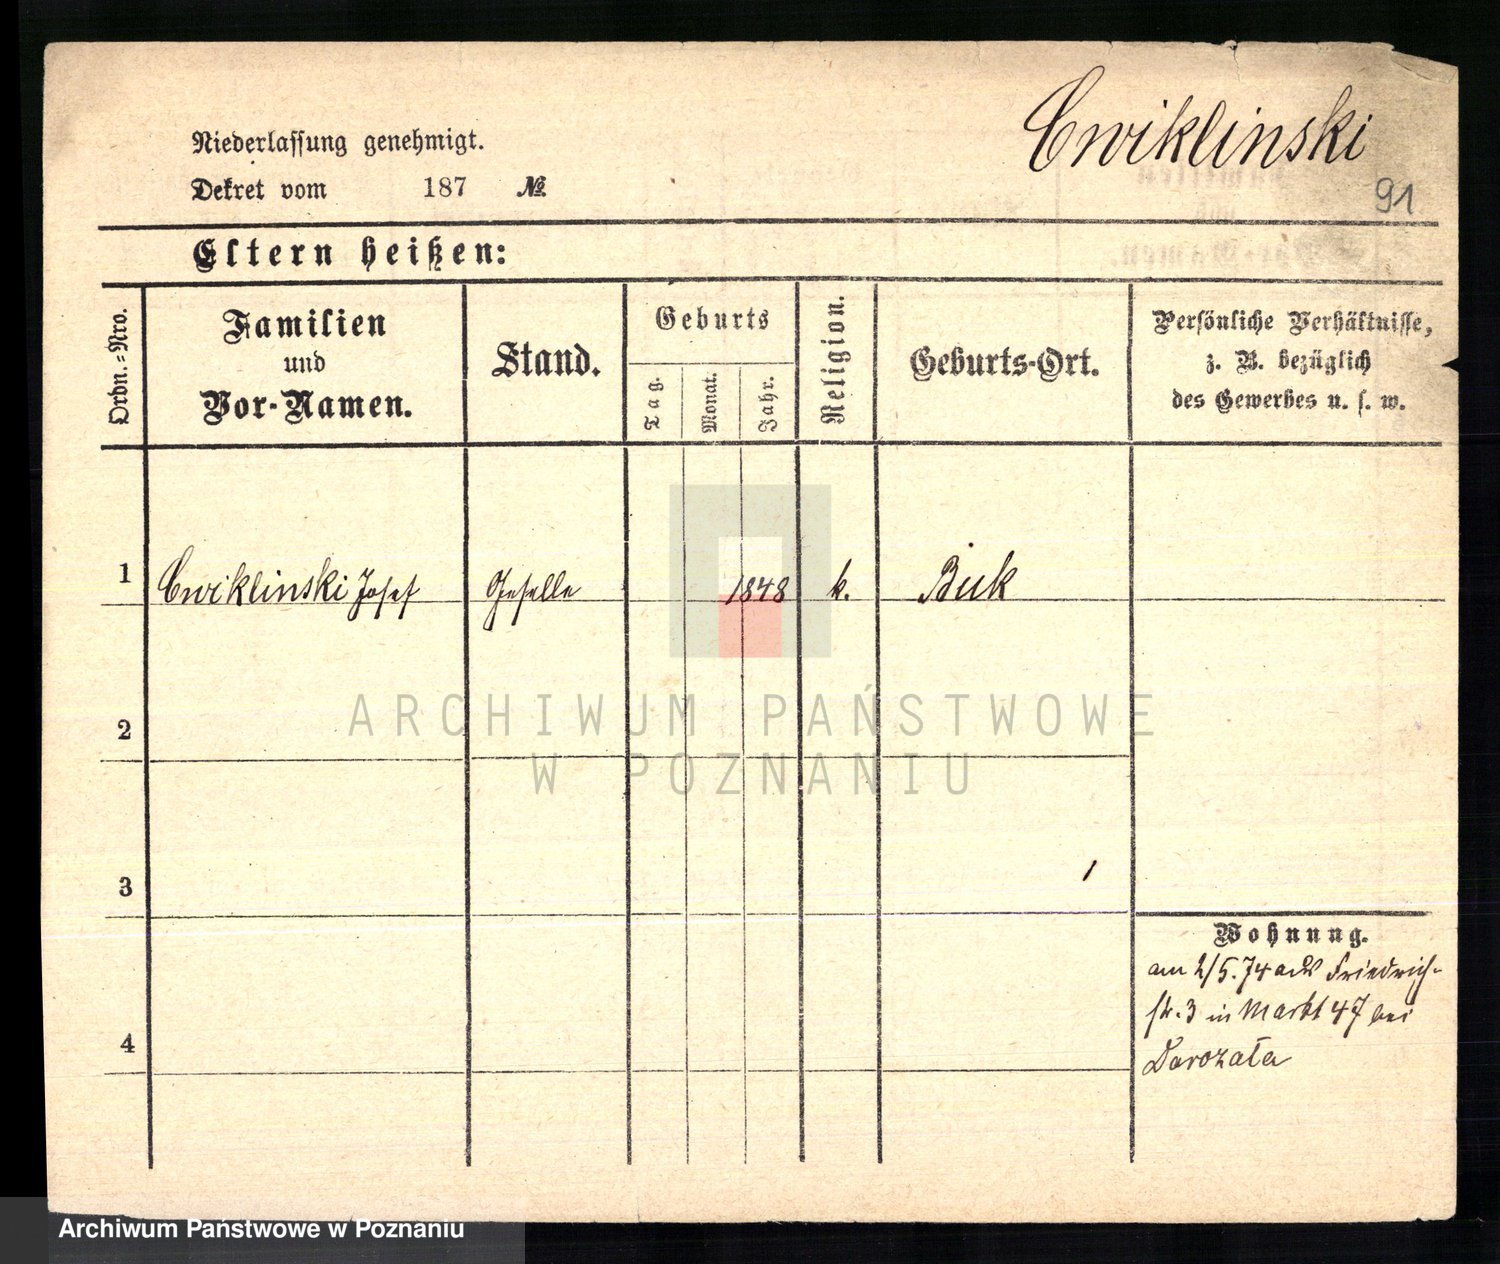 Cwiklinski
91
Niederlassung genehmigt.
Dekret vom 187 №
Eltern heißen:
Ordn.=Nro.
Familien
und
Vor-Namen.
Stand.
Geburts
Tag.
Monat.
Jahr.
Religion.
Geburts-Ort.
Persönliche Verhältnisse,
z. B. bezüglich
des Gewerbes u. s. w.
1 Cwiklinski Josef Geselle 1848 k. Buk
ARCHIWUM PAŃSTWOWE
W POZNANIU
2
3
Wohnung.
am 2/5.74 aus Friedrich-
str. 3 in Markt 47 bei
4
Archiwum Państwowe w Poznaniu